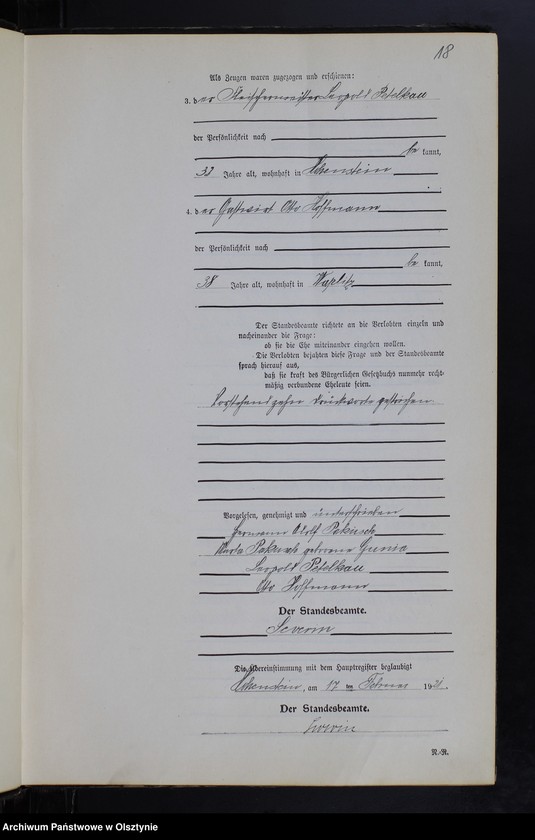 18
Als Zeugen waren zugezogen und erschienen:
3. der Fleischermeister Leopold Petelkau
der Persönlichkeit nach
be kannt,
33 Jahre alt, wohnhaft in Hohenstein
4. der Gastwirt Otto Hoffmann
der Persönlichkeit nach
be kannt,
38 Jahre alt, wohnhaft in Waplitz
Der Standesbeamte richtete an die Verlobten einzeln und
nacheinander die Frage:
ob sie die Ehe miteinander eingehen wollen.
Die Verlobten bejahten diese Frage und der Standesbeamte
sprach hierauf aus,
daß sie kraft des Bürgerlichen Gesetzbuchs nunmehr recht-
mäßig verbundene Eheleute seien.
Vorstehend zehn Druckworte gestrichen.
Vorgelesen, genehmigt und unterschrieben
Hermann Adolf
geborene
Leopold Petelkau
Otto Hoffmann
Der Standesbeamte.
Severin
Die Übereinstimmung mit dem Hauptregister beglaubigt
Hohenstein, am 17 ten Februar 1921.
Der Standesbeamte.
Severin
N.-R.
Archiwum Państwowe w Olsztynie